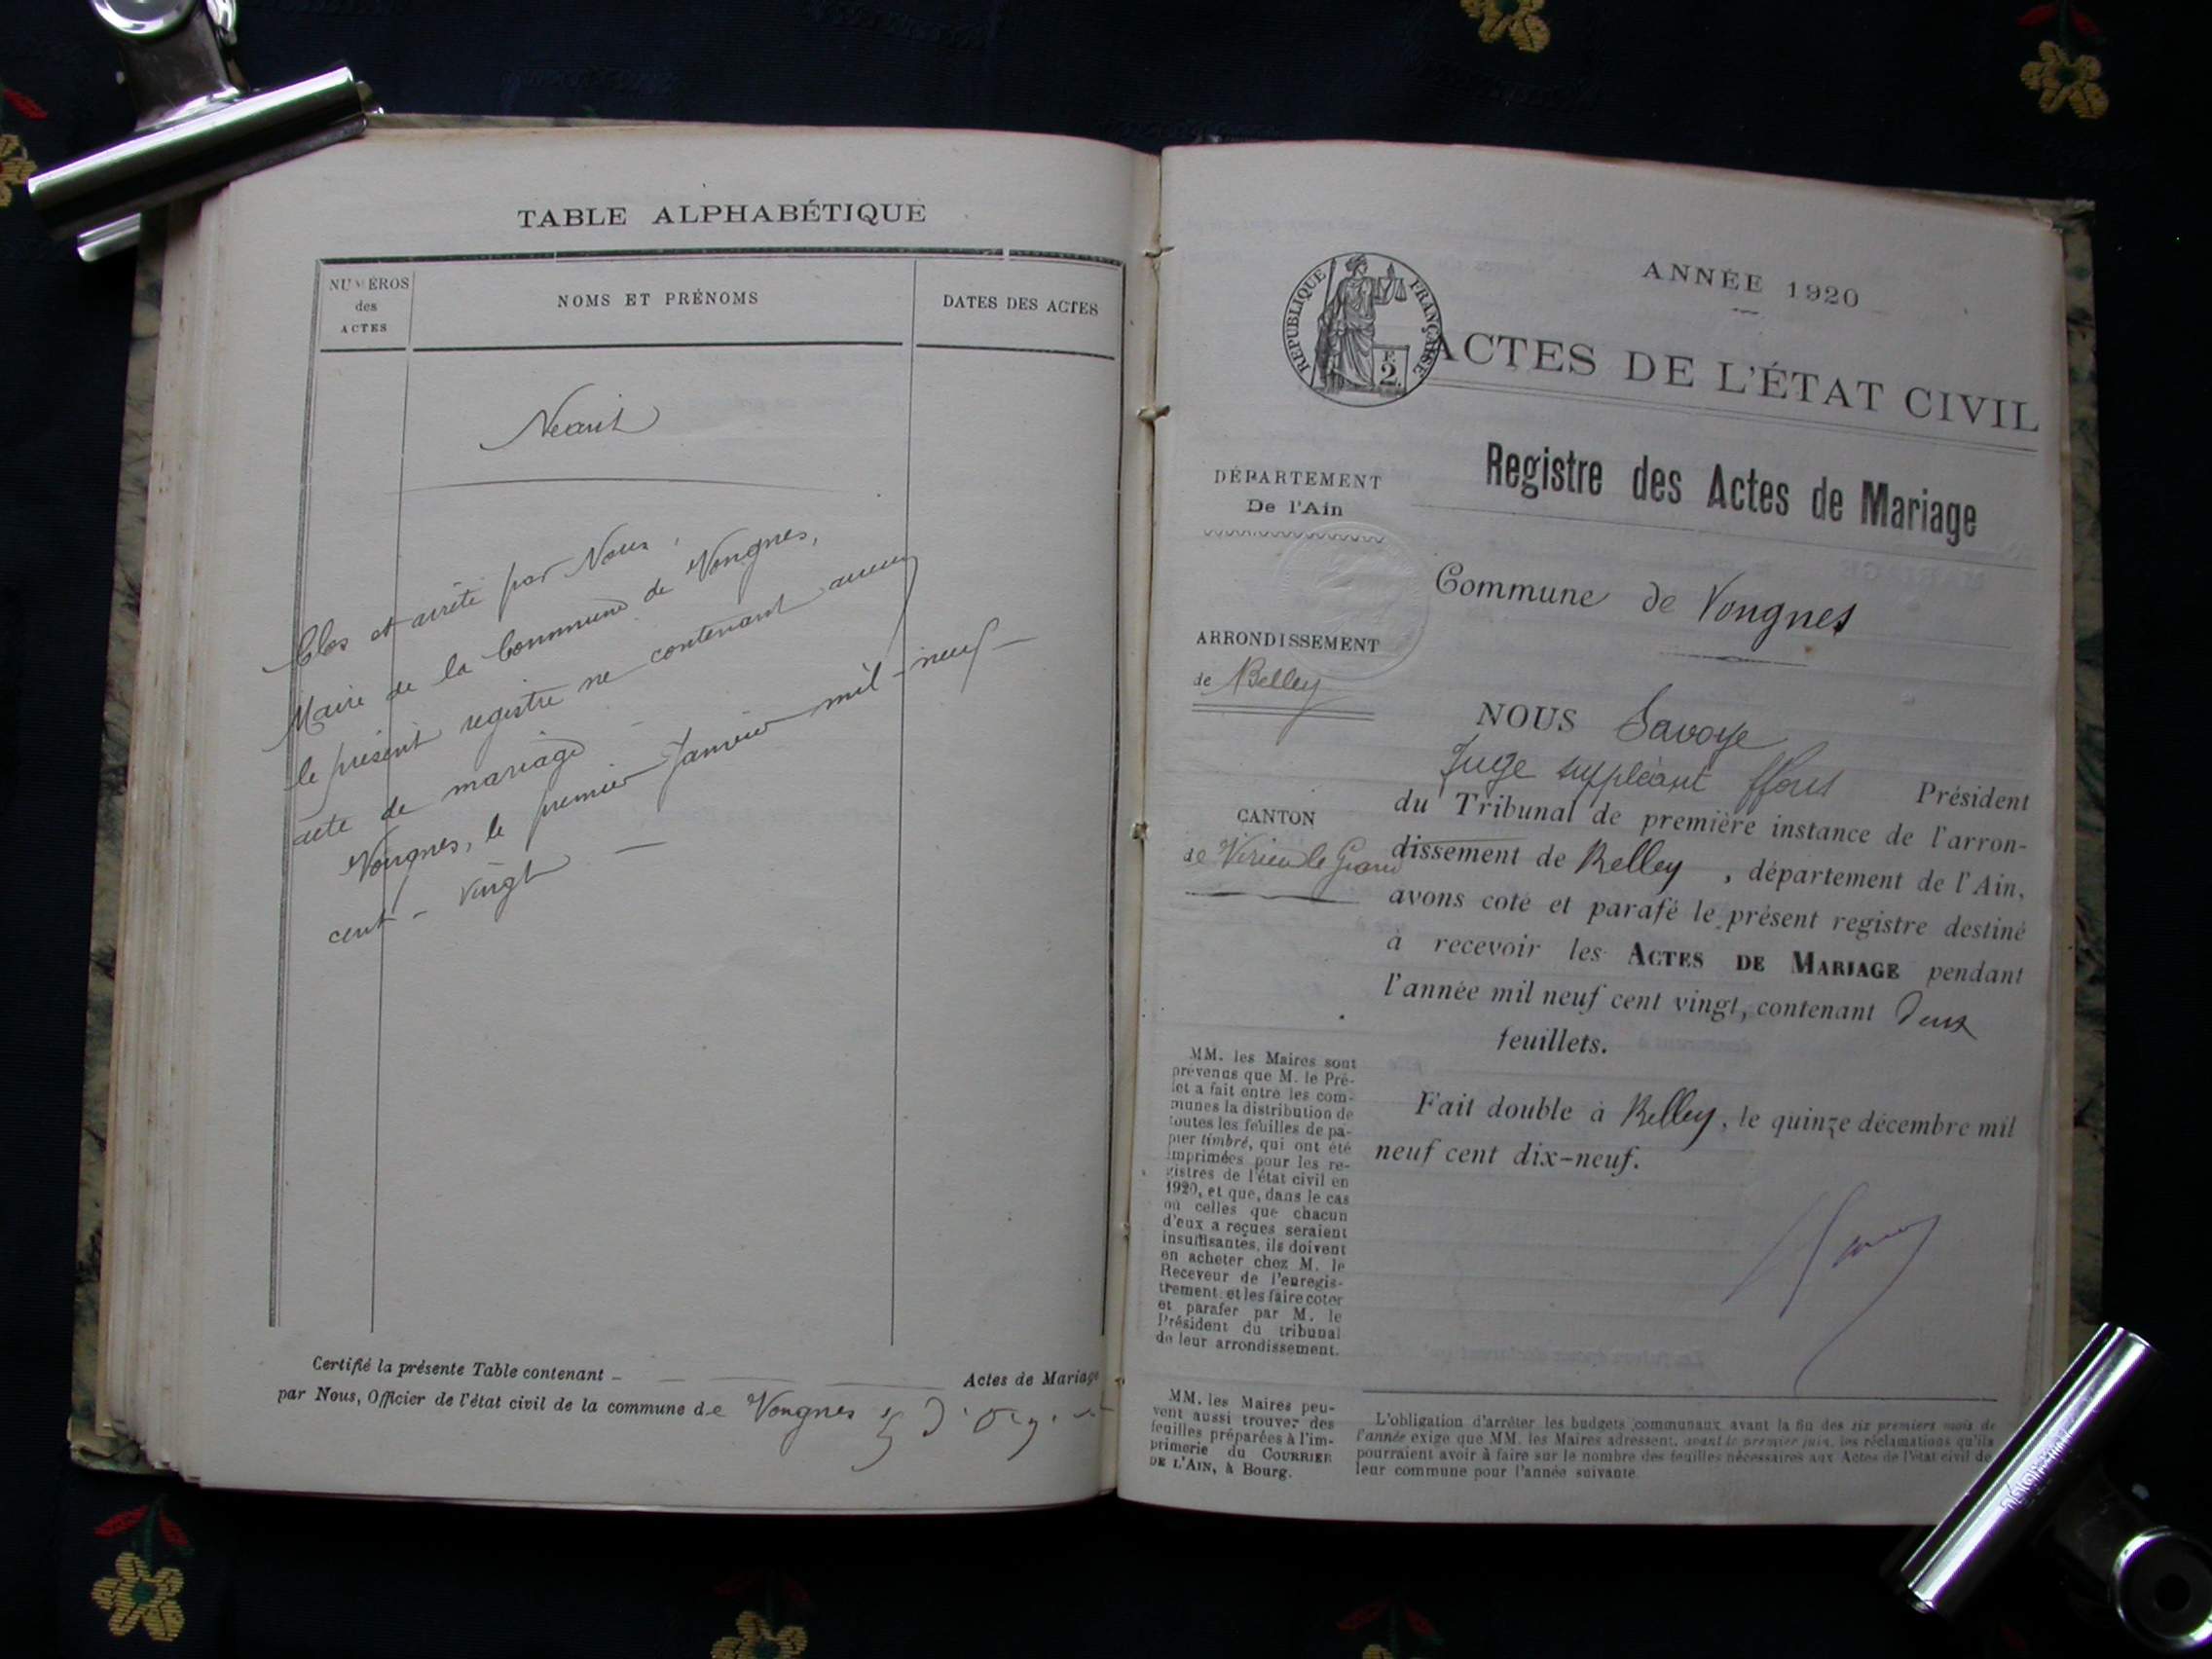 TABLE ALPHABÉTIQUE
NUMÉROS
des
ACTES
NOMS ET PRÉNOMS
DATES DES ACTES
Néant
Clos et arrêté par Nous,
Maire de la Commune de Vongnes,
le présent registre ne contenant aucun
acte de mariage
Vongnes, le premier Janvier mil-neuf-
cent-vingt
Certifié la présente Table contenant Actes de Mariage
par Nous, Officier de l'état civil de la commune de Vongnes
ANNÉE 1920
RÉPUBLIQUE FRANÇAISE
F.
2.
ACTES DE L'ÉTAT CIVIL
Registre des Actes de Mariage
DÉPARTEMENT
De l'Ain
Commune de Vongnes
ARRONDISSEMENT
de Belley
CANTON
de Virieu le Grand
NOUS Savoye
Juge suppléant ffons Président
du Tribunal de première instance de l'arron-
dissement de Belley, département de l'Ain,
avons coté et parafé le présent registre destiné
à recevoir les ACTES DE MARIAGE pendant
l'année mil neuf cent vingt, contenant deux
feuillets.
Fait double à Belley, le quinze décembre mil
neuf cent dix-neuf.
MM. les Maires sont
prévenus que M. le Pré-
fet a fait entre les com-
munes la distribution de
toutes les feuilles de pa-
pier timbré, qui ont été
imprimées pour les re-
gistres de l'état civil en
1920, et que, dans le cas
où celles que chacun
d'eux a reçues seraient
insuffisantes, ils doivent
en acheter chez M. le
Receveur de l'enregis-
trement et les faire coter
et parafer par M. le
Président du tribunal
de leur arrondissement.
MM. les Maires peu-
vent aussi trouver des
feuilles préparées à l'im-
primerie du COURRIER
DE L'AIN, à Bourg.
L'obligation d'arrêter les budgets communaux avant la fin des six premiers mois de
l'année exige que MM. les Maires adressent, avant le premier juin, les réclamations qu'ils
pourraient avoir à faire sur le nombre des feuilles nécessaires aux Actes de l'état civil de
leur commune pour l'année suivante.